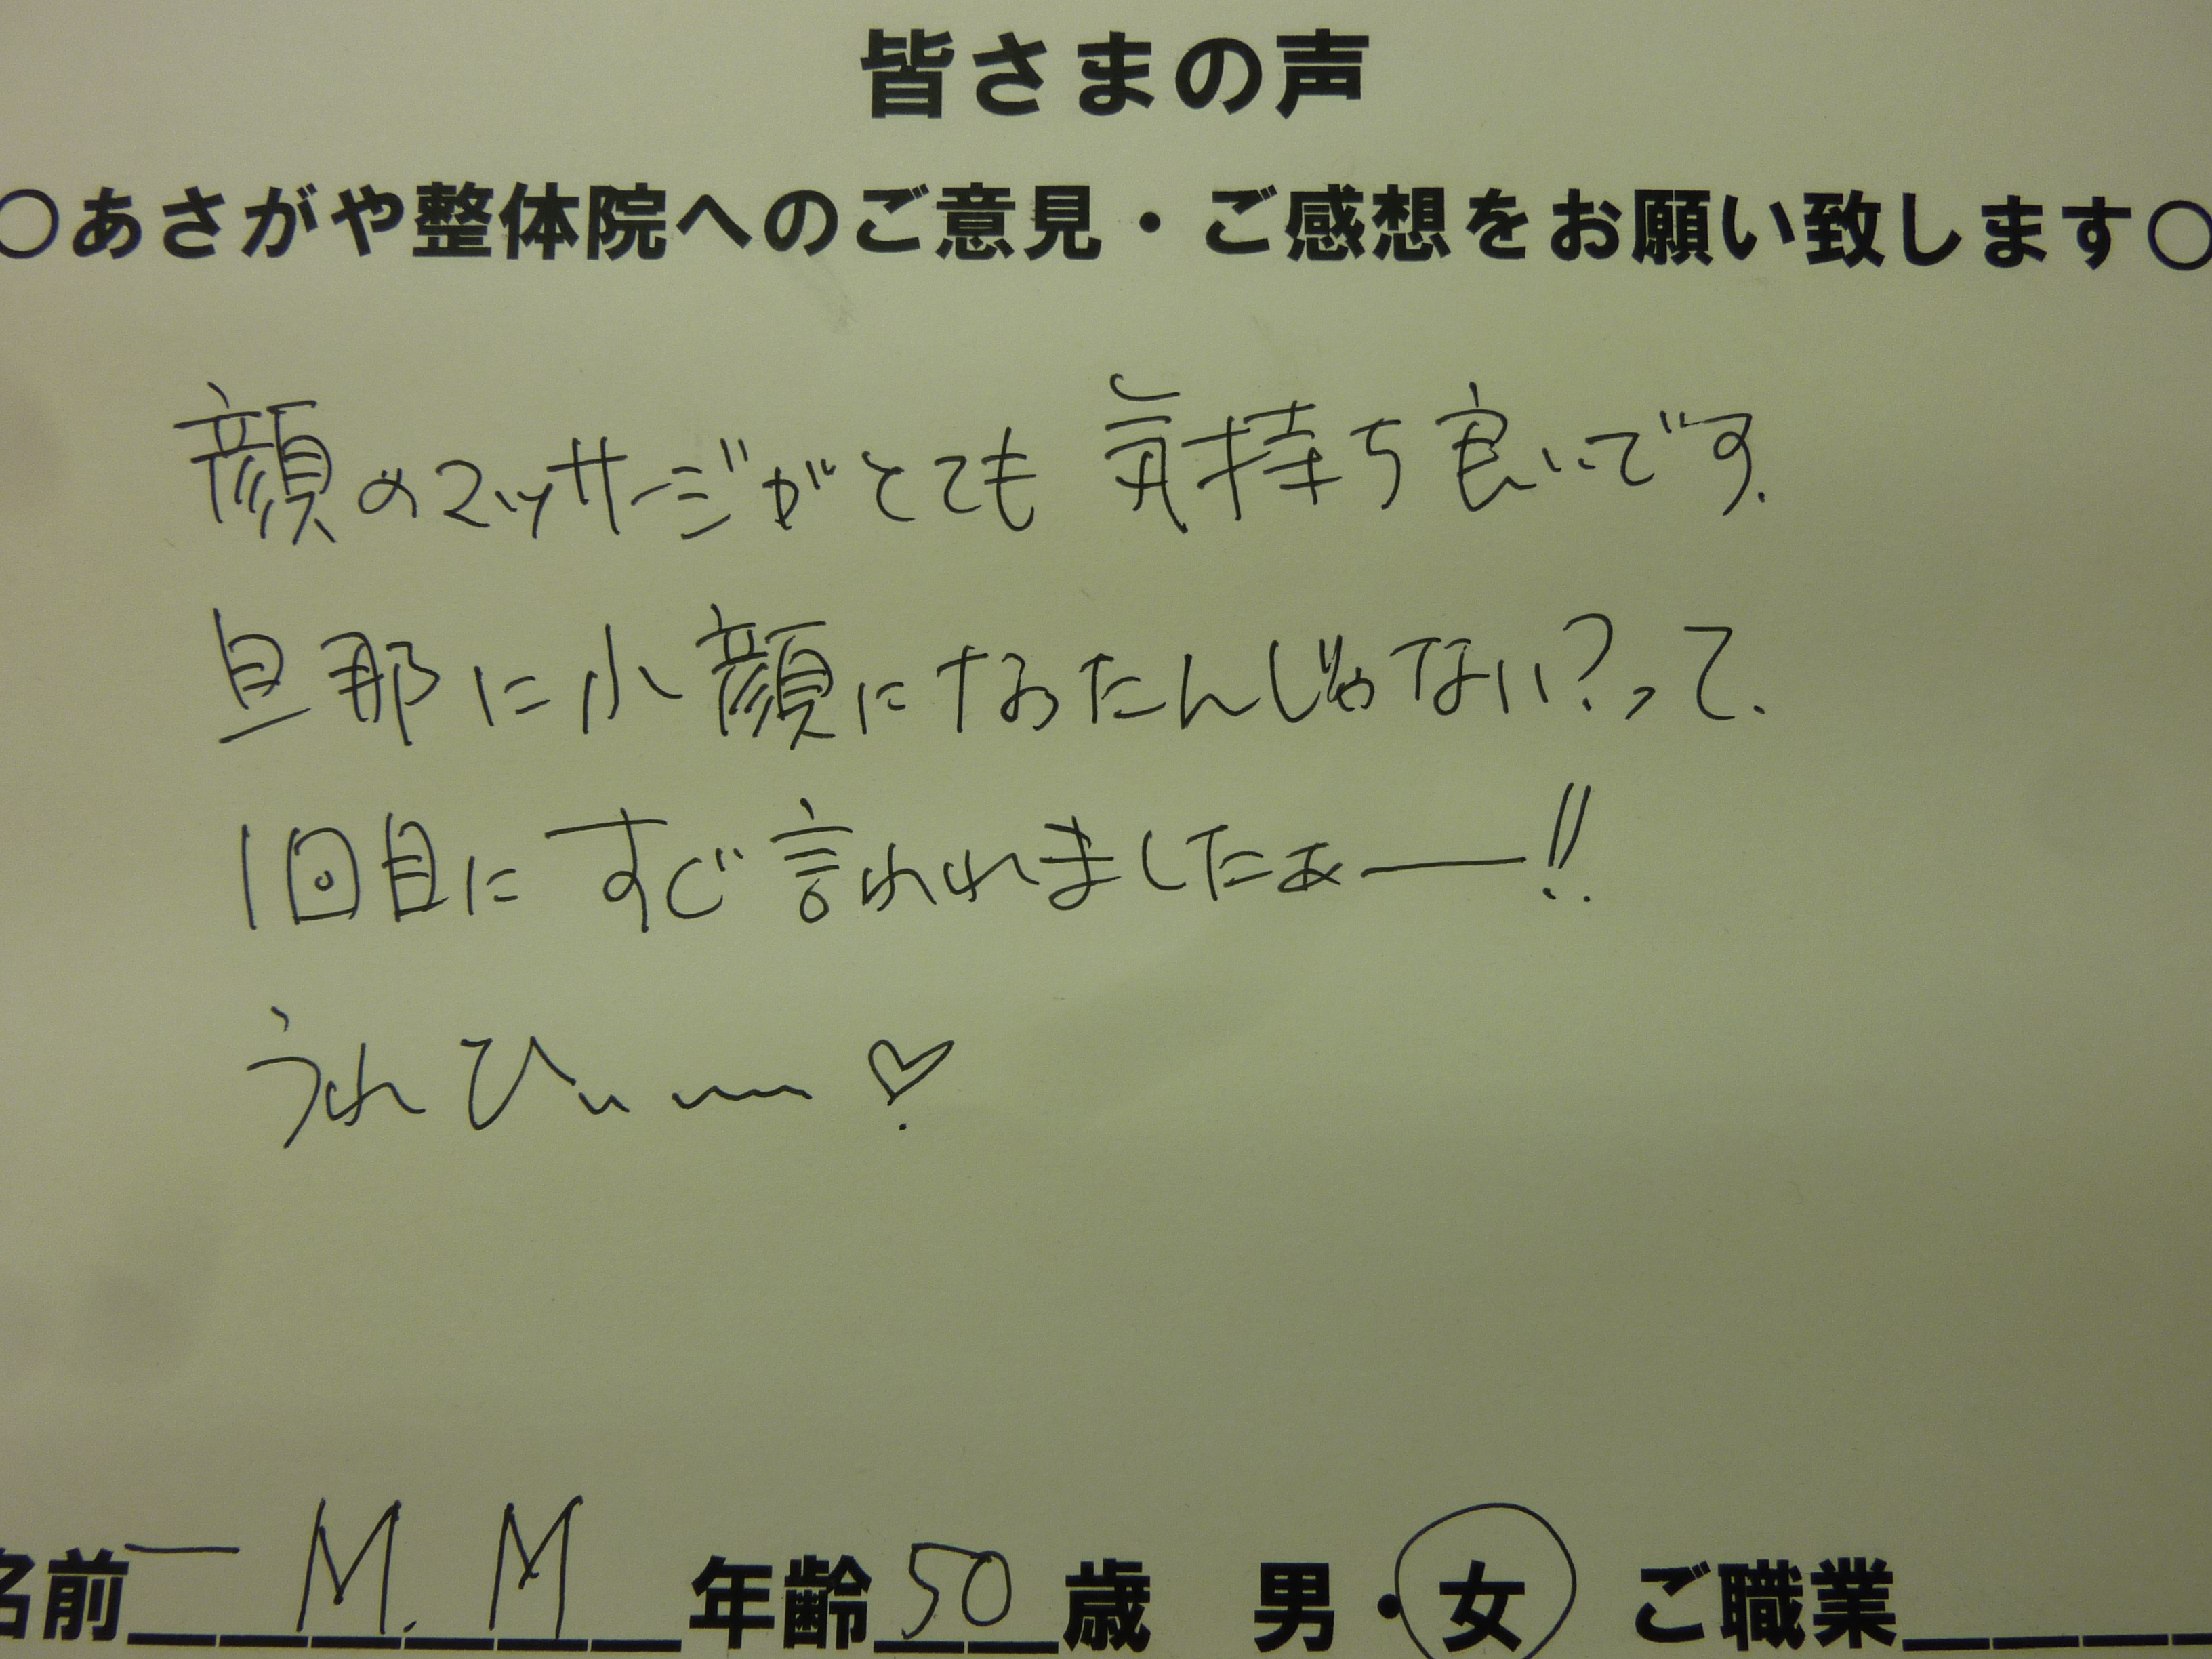 皆さまの声
○あさがや整体院へのご意見・ご感想をお願い致します○
顔のマッサージがとても気持ち良いです.
旦那に小顔になったんじゃない?って.
1回目にすぐ言われましたぁー!!
うれひぃ〜♡.
名前 M. M 年齢 50 歳 男・女 ご職業